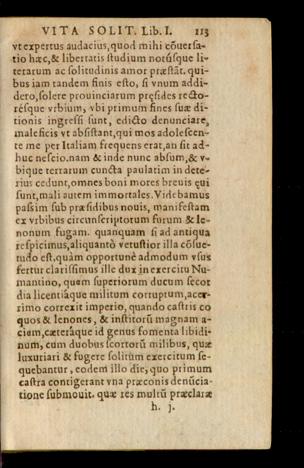 VITA SOLIT. Lib. I. 113
vt expertus audacius, quod mihi cõuersa-
tio hæc, & libertatis studium notúsque li-
terarum ac solitudinis amor præstãt. qui-
bus iam tandem finis esto, si vnum addi-
dero, solere prouinciarum pręsides recto-
résque vrbium, vbi primum fines suæ di-
tionis ingressi sunt, edicto denunciare,
maleficis vt absistant, qui mos adolescen-
te me per Italiam frequens erat, an sit ad-
huc nescio. nam & inde nunc absum, & v-
bique terrarum cuncta paulatim in dete-
rius cedunt, omnes boni mores breuis ęui
sunt, mali autem immortales. Videbamus
passim sub præsidibus nouis, manifestam
ex vrbibus circunscriptorum furum & le-
nonum fugam. quanquam si ad antiqua
respicimus, aliquantò vetustior illa cõsue-
tudo est, quàm opportunè admodum vsus
fertur clarissimus ille dux in exercitu Nu-
mantino, quem superiorum ducum secor
dia licentiáque militum corruptum, acer-
rimo correxit imperio, quando castris co
quos & lenones, & institorũ magnam a-
ciem, cæteráque id genus fomenta libidi-
num, cum duobus scortorũ milibus, quæ
luxuriari & fugere solitum exercitum se-
quebantur, eodem illo die, quo primum
castra contigerant vna præconis denũcia-
tione submouit. quæ res multũ præclaræ
h. j.